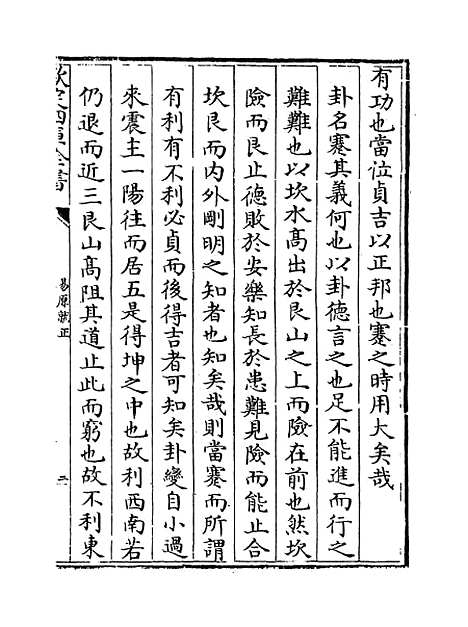 有功也當位貞吉以正邦也蹇之時用大矣哉
卦名蹇其義何也以卦德言之也足不能進而行之
難難也以坎水髙出於艮山之上而險在前也然坎
險而艮止德敗於安樂知長於患難見險而能止合
坎艮而内外剛明之知者也知矣哉則當蹇而所謂
有利有不利必貞而後得吉者可知矣卦變自小過
來震主一陽往而居五是得坤之中也故利西南若
仍退而近三艮山髙阻其道止此而窮也故不利東
欽定四庫全書
易原就正
二